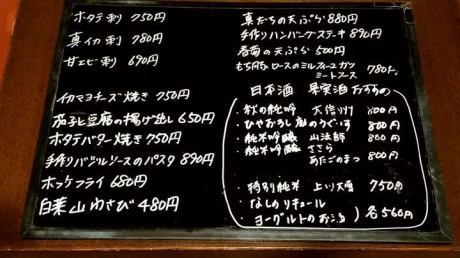 ホタテ刺 750円
真イカ刺 780円
甘エビ刺 690円
イカマヨチーズ焼き 750円
茄子と豆腐の揚げ出し 650円
ホタテバター焼き 750円
手作りバジルソースのパスタ 890円
ホッケフライ 680円
白菜山わさび 480円
真たちの天ぷら 880円
手作りハンバーグステーキ 890円
春菊の天ぷら 500円
もち豚ロースのミルフィーユカツ
ミートソース 780円
日本酒 果実酒 おすすめ
・秋の純吟 大信州 800円
・ひやおろし 鳳のうぐいす 800円
・純米吟醸 山法師 800円
・純米吟醸 ささら
あたごのまつ 800円
・特別純米 上川大雪 750円
・なしのリキュール
・ヨーグルトのお酒 各560円